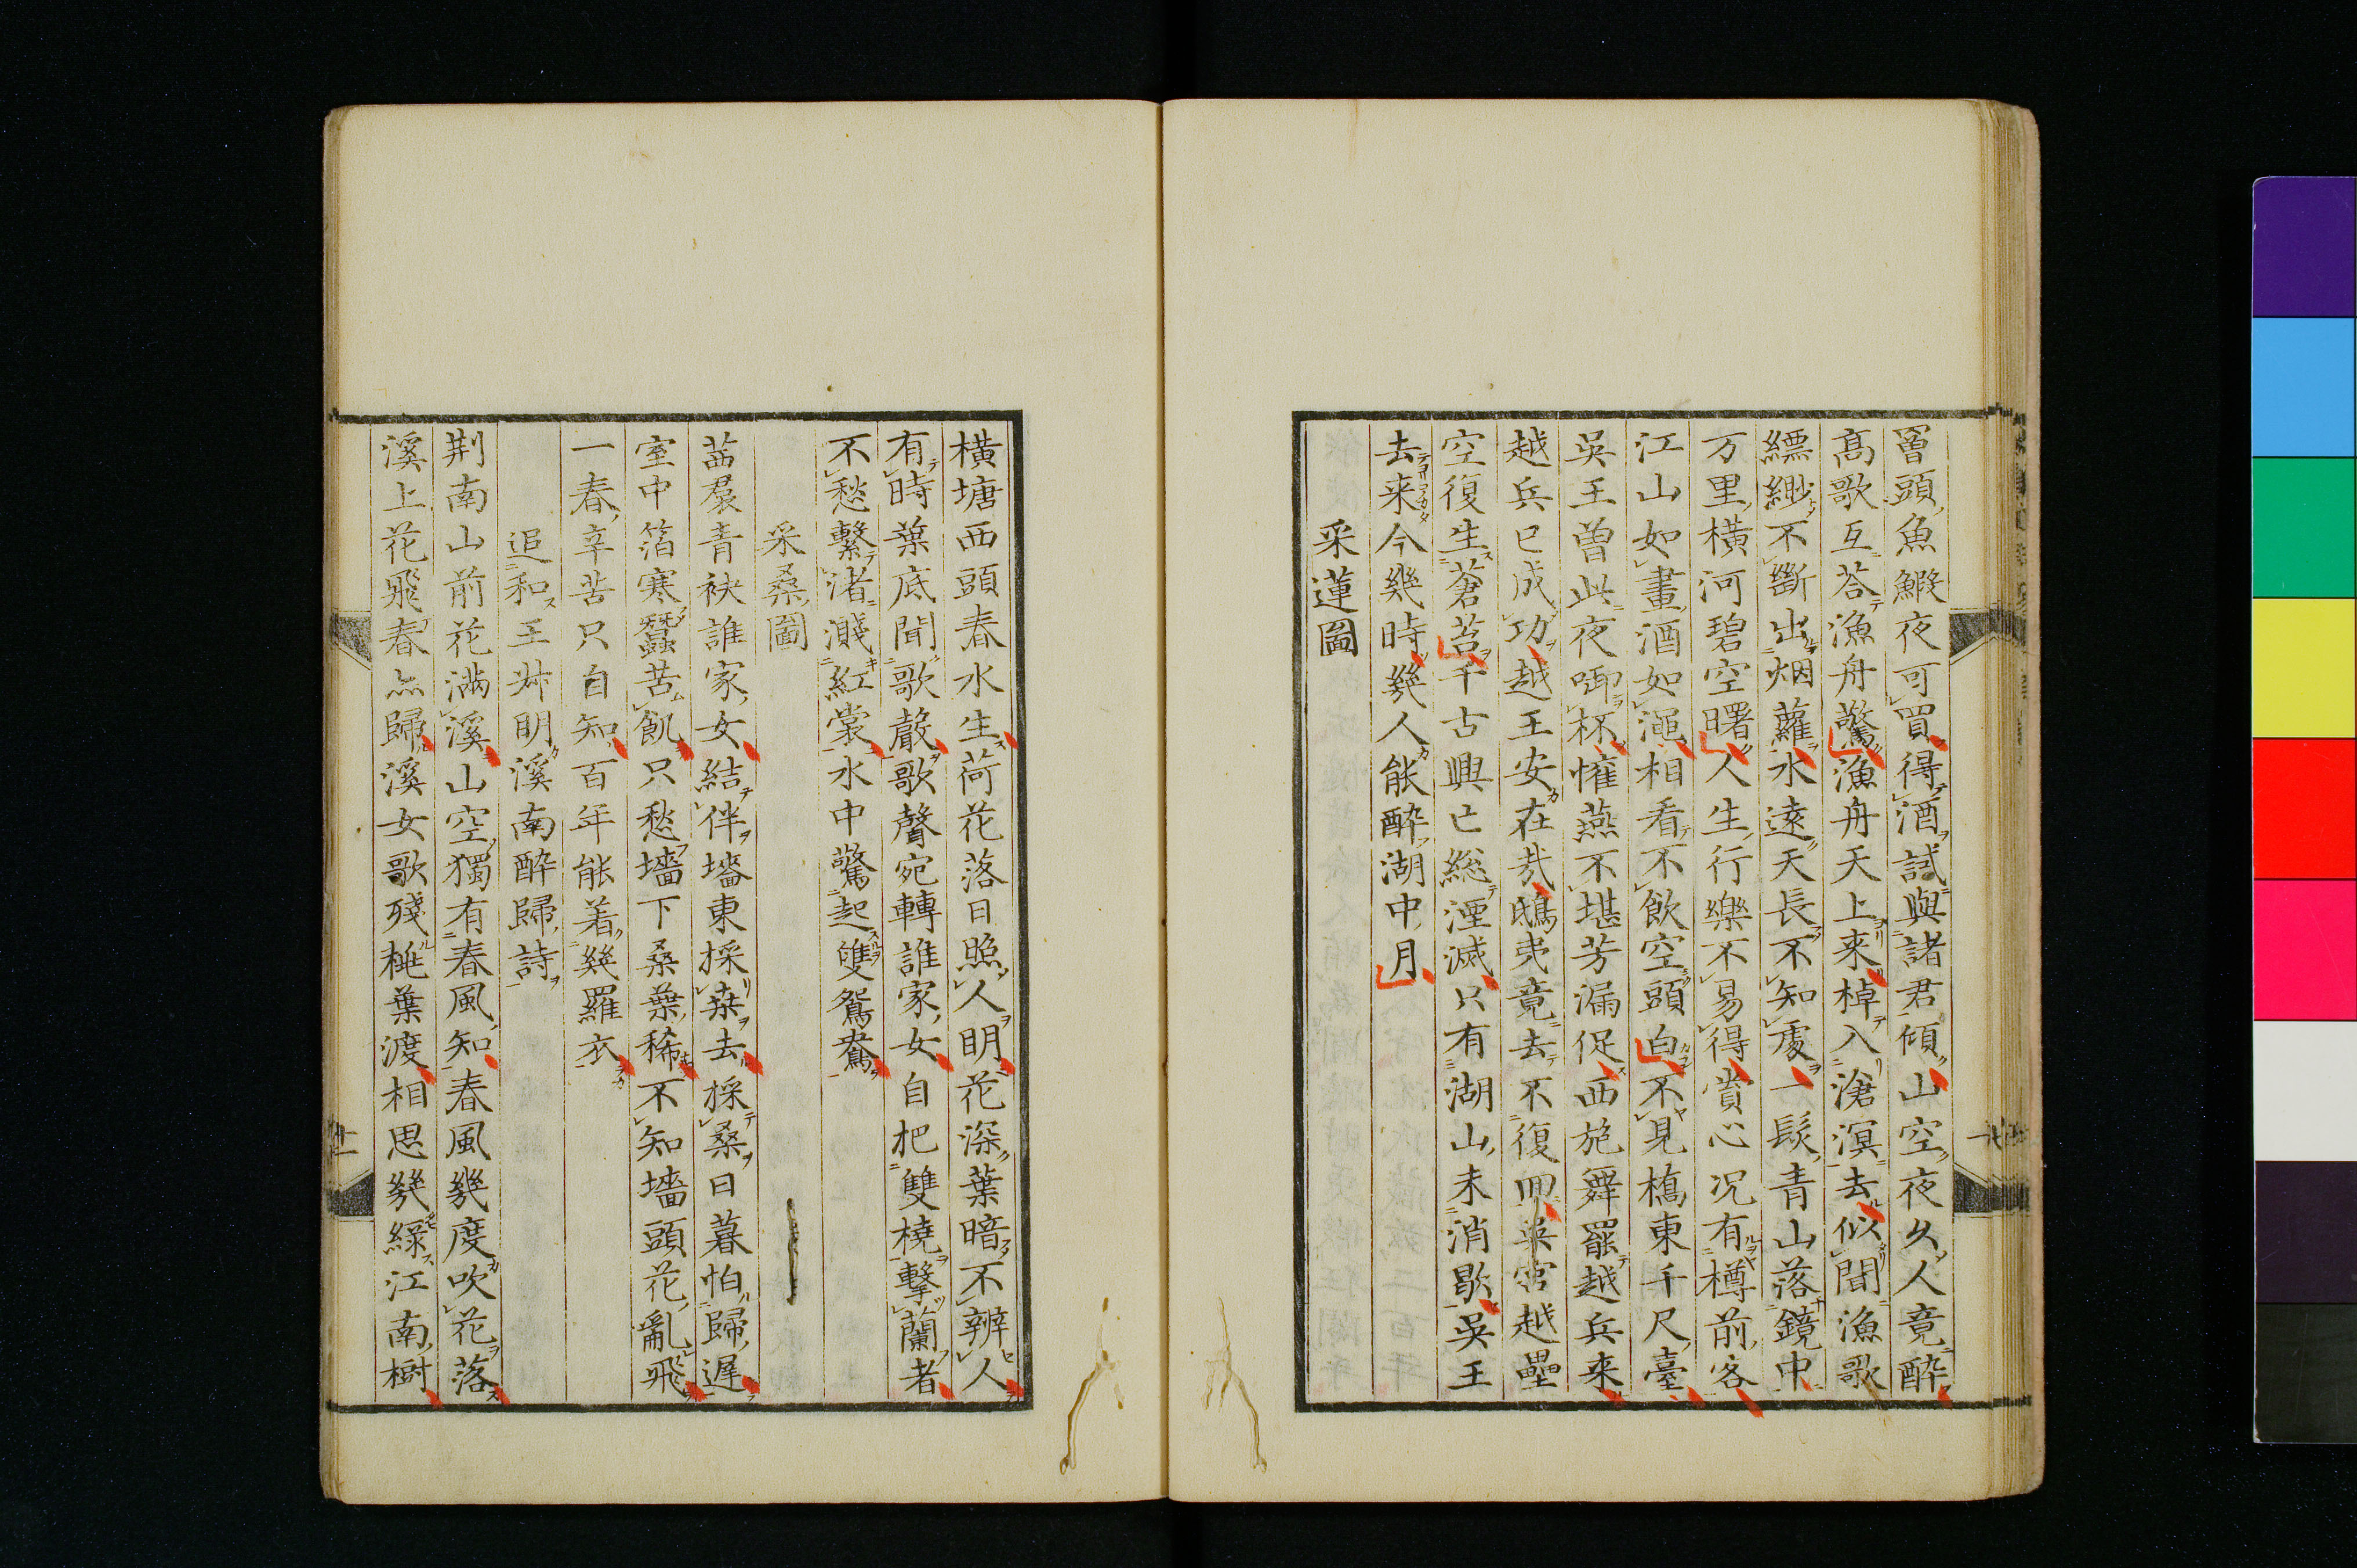 罾頭魚鰕夜可買得酒試與諸君傾山空夜久人竟醉
髙歌互荅漁舟驚漁舟天上来棹入滄溟去似聞漁歌
縹緲不斷出烟蘿水遠天長不知處一髮青山落鏡中
万里橫河碧空曙人生行樂不易得賞心况有樽前客
江山如畫酒如澠相看不飲空頭白不見檇東千尺臺
吳王曽此夜啣杯慛燕不堪芳漏促西施舞罷越兵来
越兵已成功越王安在哉鴟夷竟去不復回吳宮越壘
空復生蒼苔千古興亡総湮滅只有湖山未消歇吳王
去来今幾時幾人能醉湖中月
采蓮圖
橫塘西頭春水生荷花落日照人明花深葉暗不辨人
有時葉底聞歌聲歌聲宛轉誰家女自把雙橈擊蘭者
不愁繫渚濺紅裳水中驚起雙鴛鴦
采桑圖
茜裙青袂誰家女結伴墻東採桒去採桑日暮怕歸遲
室中箔寒蠶苦飢只愁墻下桑葉稀不知墻頭花亂飛
一春辛苦只自知百年能着幾羅衣
追和王叔明溪南醉歸詩
荆南山前花滿溪山空獨有春風知春風幾度吹花落
溪上花飛春亦歸溪女歌殘桃葉渡相思幾緑江南樹